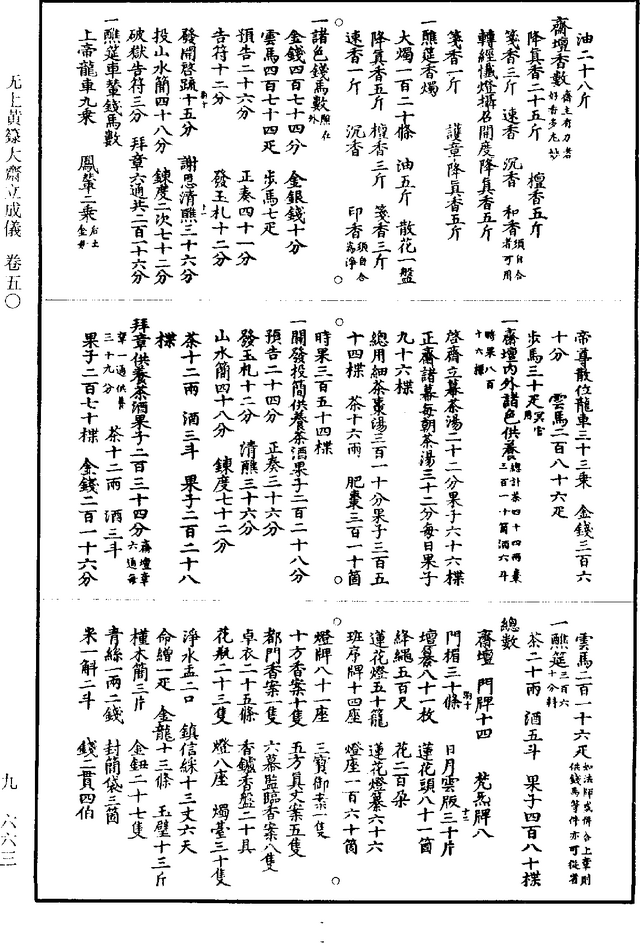 油二十八斤
齋壇香數齋主有力者好香多尤妙
降眞香二十五斤　檀香五斤
箋香三斤　速香　沉香　和香須自合者可用
轉經儀燈攝召開度降眞香五斤
箋香一斤　護章降眞香五斤
一醮筵香燭
大燭一百二十條　油五斤　散花一盤
降眞香五斤　檀香三斤　箋香三斤
速香一斤　沉香　印香須自合爲淨
一諸色錢馬數燭在外
金錢四百七十四分　金銀錢十分
雲馬四百七十四疋　步馬七疋
預告二十六分　正奏四十一分
告符十二分　發玉札十二分
發開啓疏十五分　謝恩清醮三十六分
投山水簡四十八分　鍊度二次七十二分
破獄告符三分　拜章六通共二百一十六分
一醮筵車輦錢馬數
上帝龍車九乘　鳳輦二乘后土金母
帝尊散位龍車三十三乘　金錢三百六
十分　雲馬二百八十六疋
步馬三十疋冥官用
一齋壇內外諸色供養總計茶四十四兩棗三百一十箇酒六斗時果八百十六楪
啓齋立幕茶湯二十二分果子六十六楪
正齋諸幕每朝茶湯三十二分每日果子
九十六楪
總用細茶棗湯三百一十分果子三百五
十四楪　茶十六兩　肥棗三百一十箇
時果三百五十四楪
一開發投簡供養茶酒果子二百二十八分
預告二十四分　正奏三十六分
發玉札十二分　清醮三十六分
山水簡四十八分　鍊度七十二分
茶十二兩　酒三斗　果子二百二十八
楪
拜章供養茶酒果子二百三十四分齋壇章六通每章一通供養三十九分　茶十二兩　酒三斗
果子二百七十楪　金錢二百一十六分
雲馬二百一十六疋如法師或併合上章則供錢馬等件亦可從省
一醮筵三百六十分料
茶二十兩　酒五斗　果子四百八十楪
總數
齋壇　門牌十四　梵炁牌八
門楣三十條　日月雲版三十片
壇纂八十一枚　蓮花頭八十一箇
絳繩五百尺　花二百朵
蓮花燈五十籠　蓮花燈纂六十六
班序牌十四座　燈座一百六十箇
燈牌八十一座　三寶御案一隻
十方香案十隻　五方眞文案五隻
都門香案一隻　六幕監臨香案八隻
卓衣二十五條　香鑪香盤二十具
花瓶二十三隻　燈八座　燭臺三十隻
淨水盂二口　鎭信綵十三丈六天
命繒一疋　金龍十三條　玉璧十三片
槿木簡三片　金鈕二十七隻
青絲一兩二錢　封簡袋三箇
米一斛二斗　錢二貫四伯
无上黃籙大齋立成儀　卷五〇
九　六六三